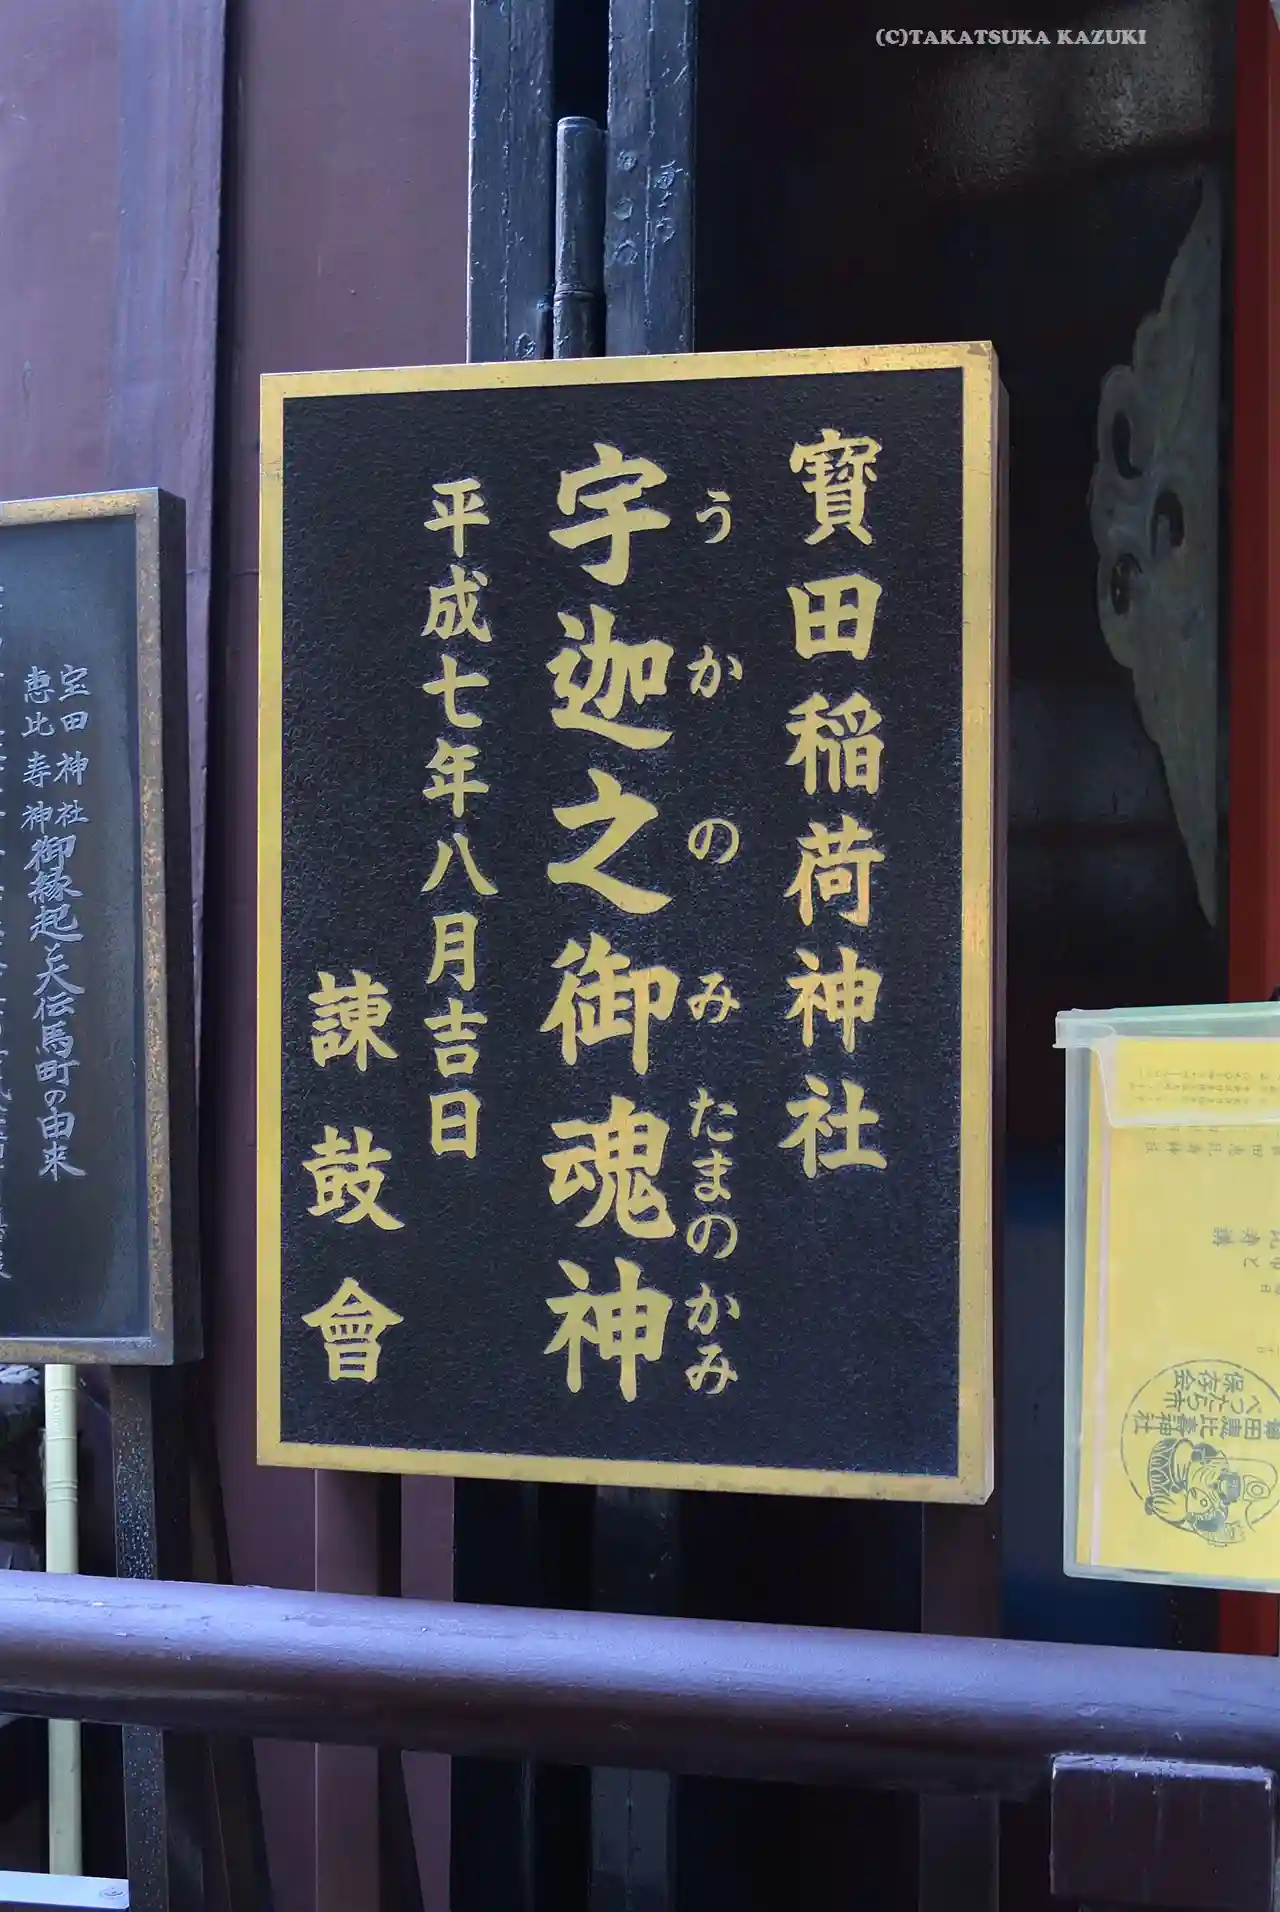 (C)TAKATSUKA KAZUKI
寶田稲荷神社
うかのみたまのかみ
宇迦之御魂神
平成七年八月吉日
諌鼓會
宝田神社
恵比寿神
御縁起と大伝馬町の由来
べったら市
保存会